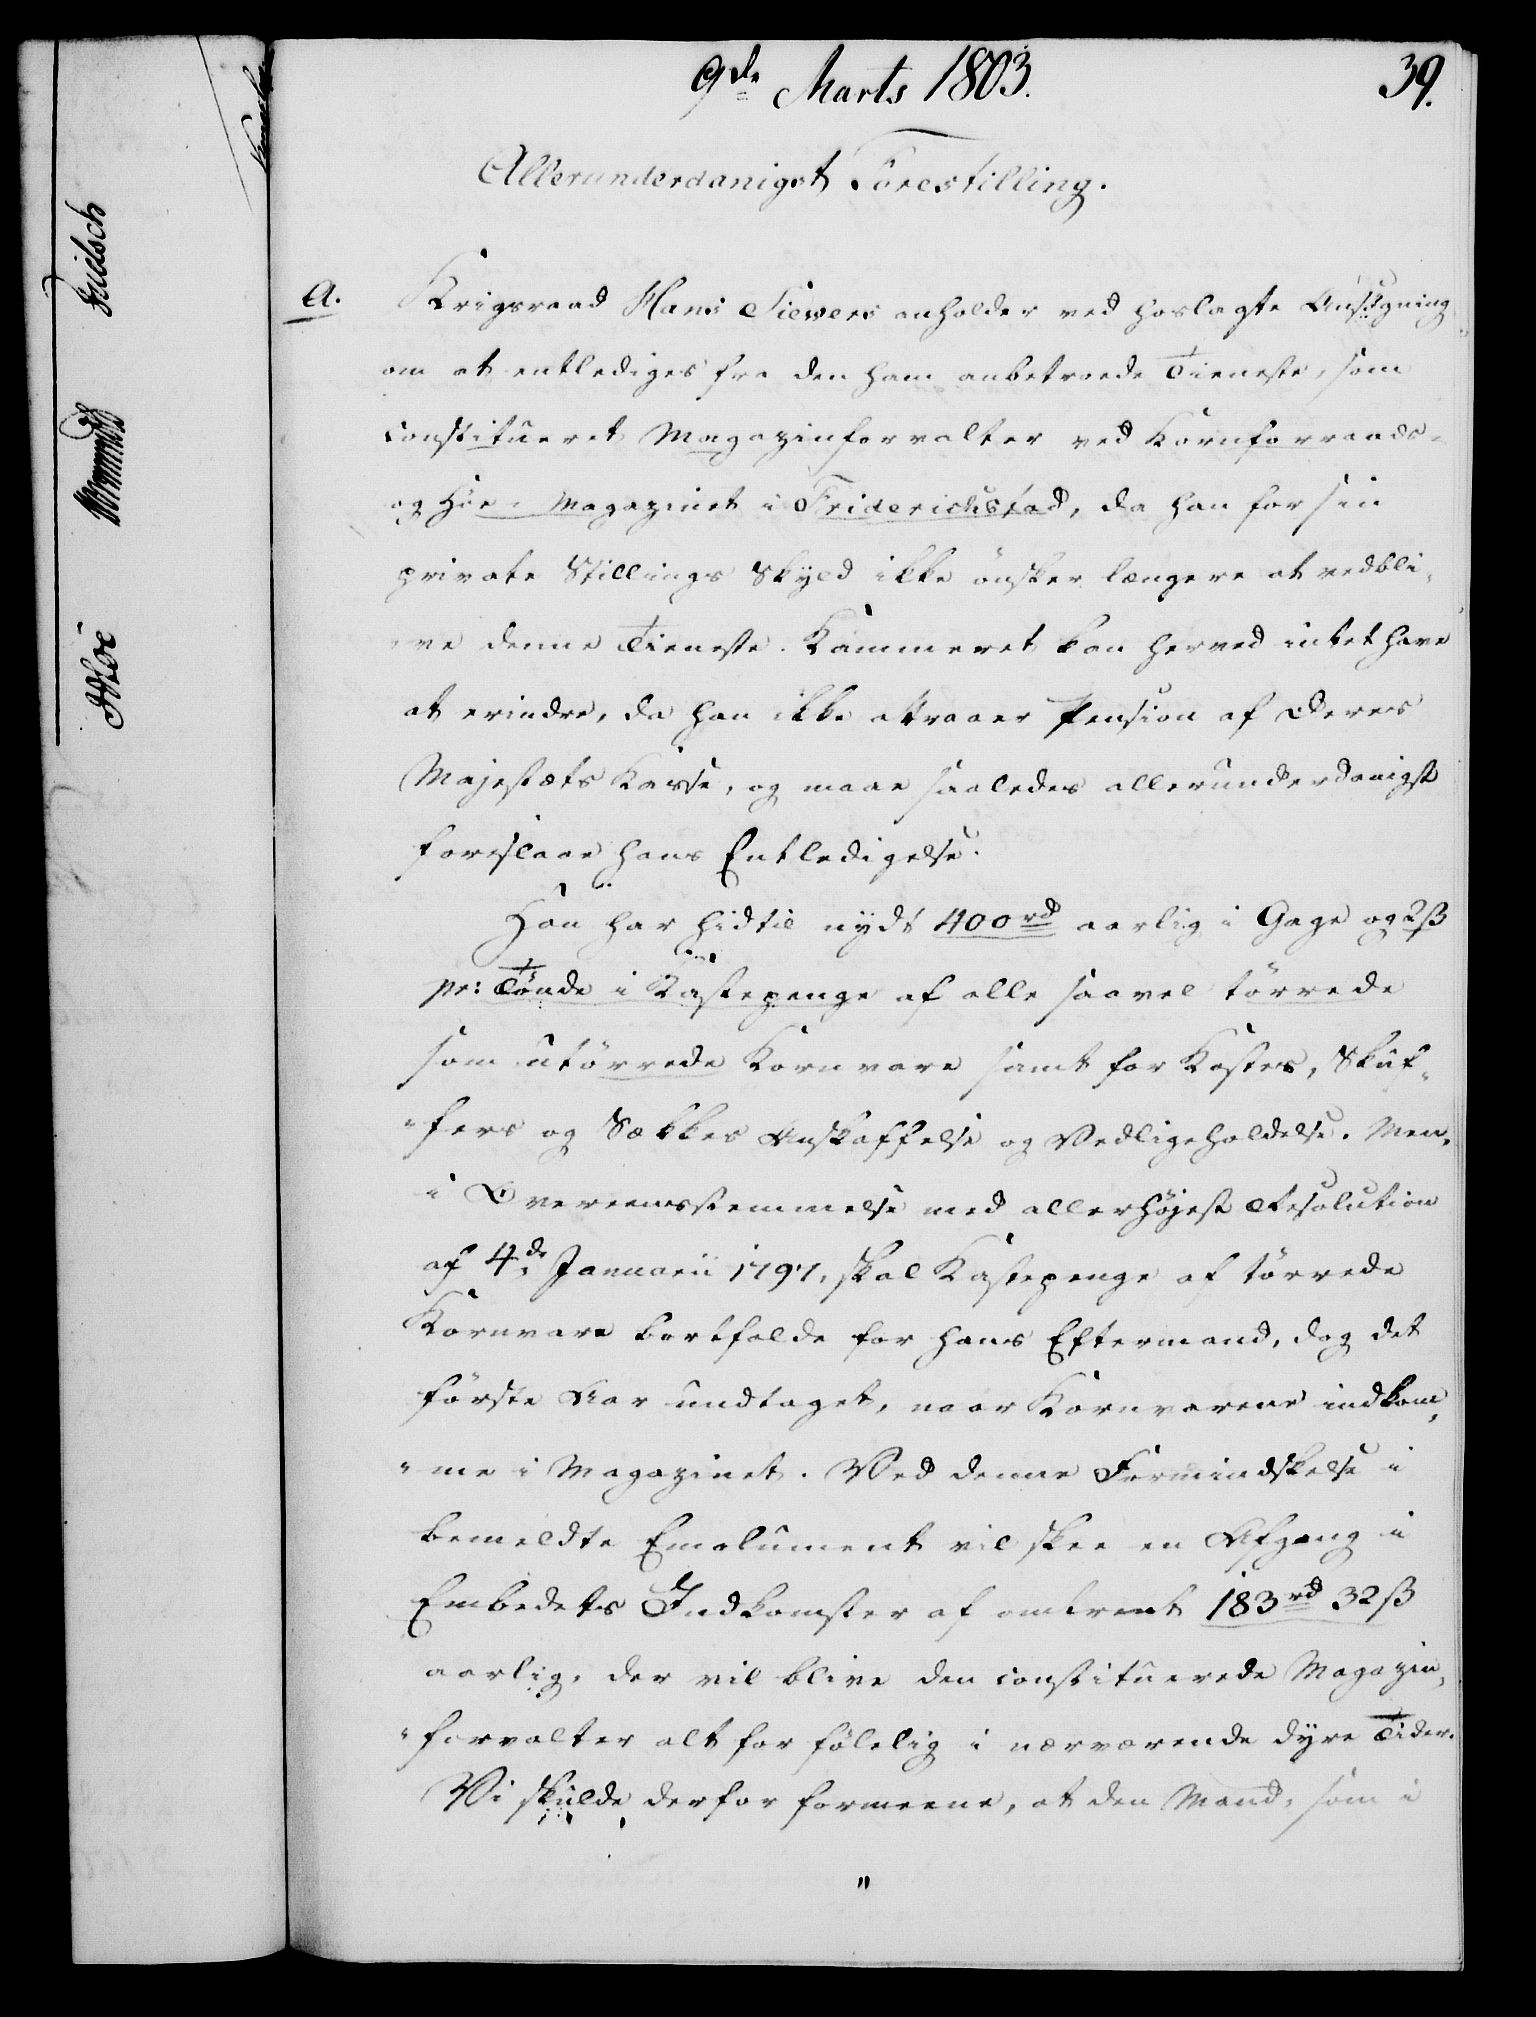 9de Marts 1803.
39.
Allerunderdanigst Forestilling.
a. Krigsraad Hans Sievers anholder ved hoslagte Ansøgning
om at entlediges fra den ham anbetroede Tieneste, som
constitueret Magazinforvalter ved Kornforraads-
og Høe-Magazinet i Friderichstad, da han for sin
private Stillings Skyld ikke ønsker længere at vedbli-
ve denne Tieneste. Kammeret kan herved intet have
at erindre, da han ikke attraaer Pension af Deres
Majestæts Kasse, og maae saaledes allerunderdanigst
foreslaae hans Entledigelse.
Han har hidtil nydt 400 rd aarlig i Gage og 2 ß
pr: Tønde i Kastepenge af alle saavel tørrede
som utørrede Kornvare samt for Kostes, Skuf-
-fers og Sækkes Anskaffelse og Vedligeholdelse. Men,
i Overeensstemmelse med allerhøjest Resolution
af 4de Januarii 1797, skal Kastepenge af tørrede
Kornvare bortfalde for hans Eftermand, dog det
første Aar undtaget, naar Kornvarene indkom-
-me i Magazinet. Ved denne Formindskelse i
bemeldte Emolument vil skee en Afgang i
Embedets Indkomster af omtrent 183 rd 32 ß
aarlig, der vil blive den constituerede Magazin-
-forvalter alt for følelig i nærværende dyre Tider.
Vi skulde derfor formeene, at den Mand, som i
"
Fridsch
Wormskiold
Høe